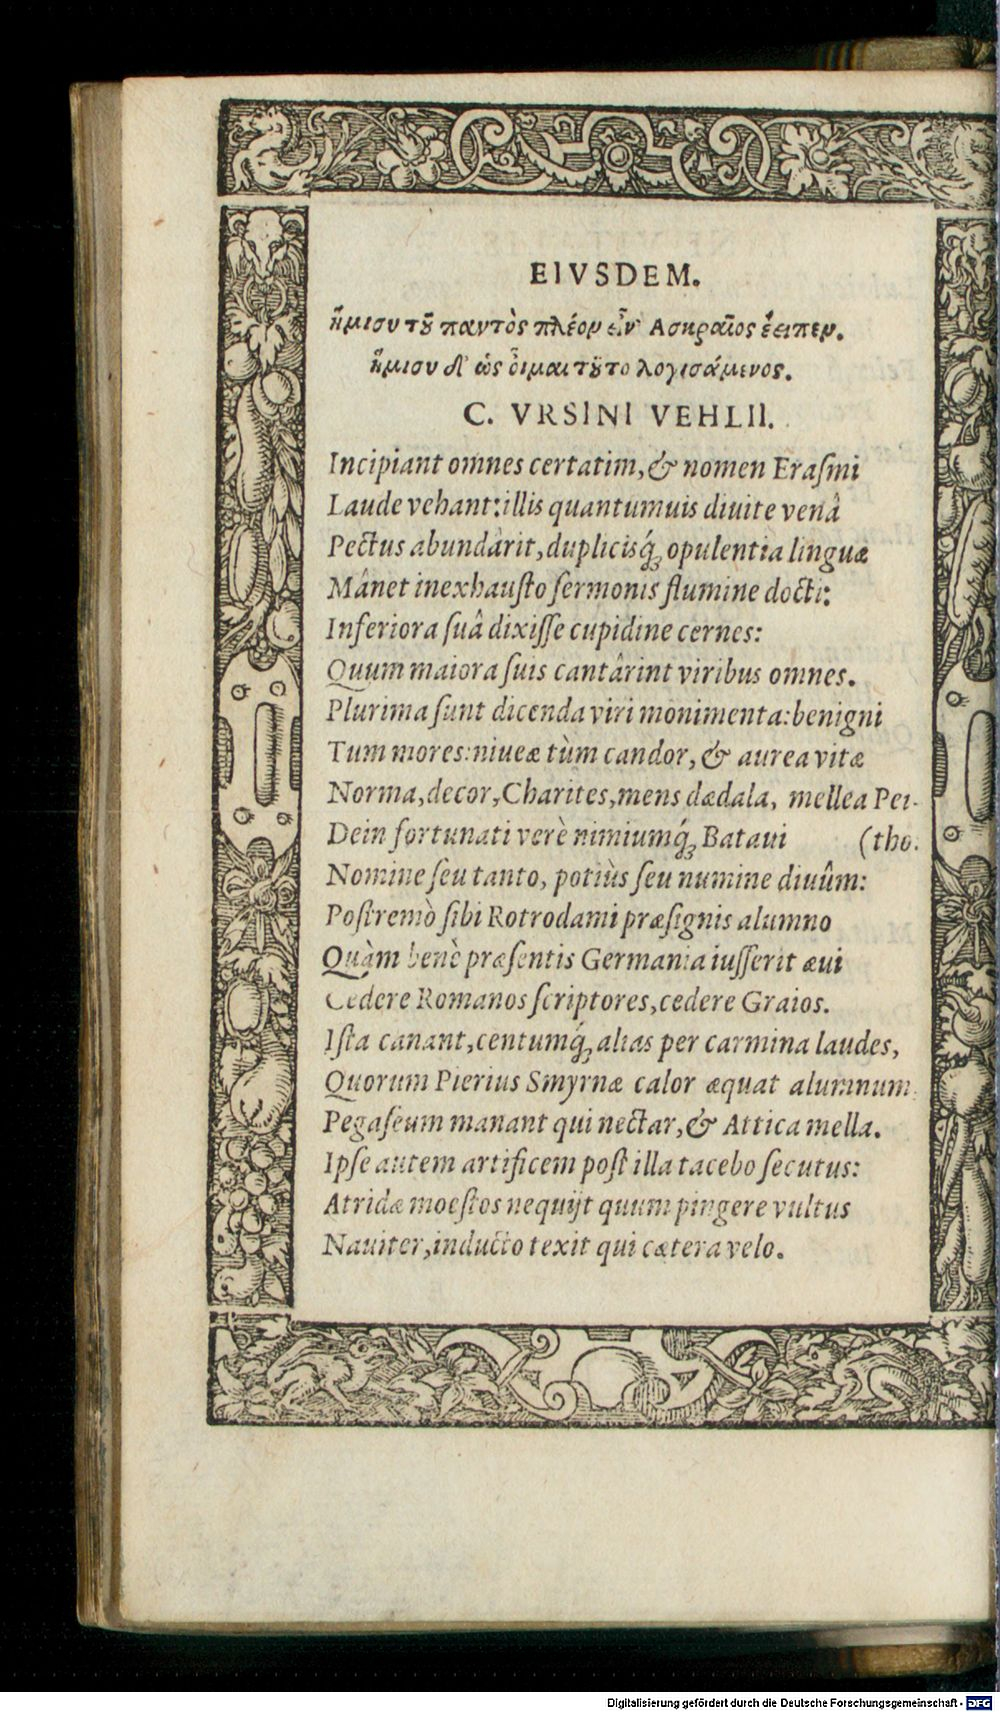 EIVSDEM.
ἥμισυ τȣ͂ παντὸς πλέον Ἀσκραῖος ἔειπεν.
ἥμισυ δ' ὡς οἶμαι τȣ͂το λογισάμενος.
C. VRSINI VEHLII.
Incipiant omnes certatim, & nomen Eraſmi
Laude vehant: illis quantumuis diuite venâ
Pectus abundârit, duplicisq́; opulentia linguæ
Mânet inexhauſto ſermonis flumine docti:
Inferiora ſuâ dixiſſe cupidine cernes:
Quum maiora ſuis cantârint viribus omnes.
Plurima ſunt dicenda viri monimenta: benigni
Tum mores: niueæ tùm candor, & aurea vitæ
Norma, decor, Charites, mens dædala, mellea Pei-
Dein fortunati verè nimiumq́; Bataui (tho.
Nomine ſeu tanto, potiùs ſeu numine diuûm:
Poſtremò ſibi Rotrodami præſignis alumno
Quàm benè præſentis Germania iuſſerit æui
Cedere Romanos ſcriptores, cedere Graios.
Iſta canant, centumq́; alias per carmina laudes,
Quorum Pierius Smyrnæ calor æquat alumnum
Pegaſeum manant qui nectar, & Attica mella.
Ipſe autem artificem poſt illa tacebo ſecutus:
Atridæ moeſtos nequijt quum pingere vultus
Nauiter, inducto texit qui cætera velo.
Digitalisierung gefördert durch die Deutsche Forschungsgemeinschaft - DFG